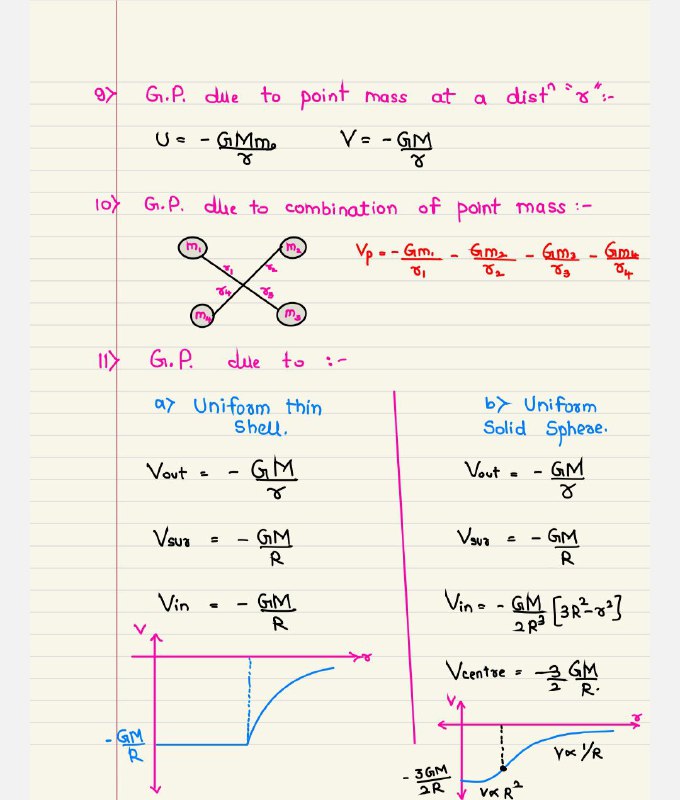 9> G.P. due to point mass at a distⁿ "r" :-
U = - GMm₀/r    V = - GM/r
10> G.P. due to combination of point mass :-
m₁ m₂ r₁ r₂ r₄ r₃ m₄ m₃
Vp = - Gm₁/r₁ - Gm₂/r₂ - Gm₃/r₃ - Gm₄/r₄
11> G.P. due to :-
a> Uniform thin
Shell.
Vout = - GM/r
Vsur = - GM/R
Vin = - GM/R
V
r
- GM/R
b> Uniform
Solid Sphere.
Vout = - GM/r
Vsur = - GM/R
Vin = - GM/2R³ [3R²-r²]
Vcentre = -3/2 GM/R.
V
r
V∝ 1/R
- 3GM/2R
V∝ R²